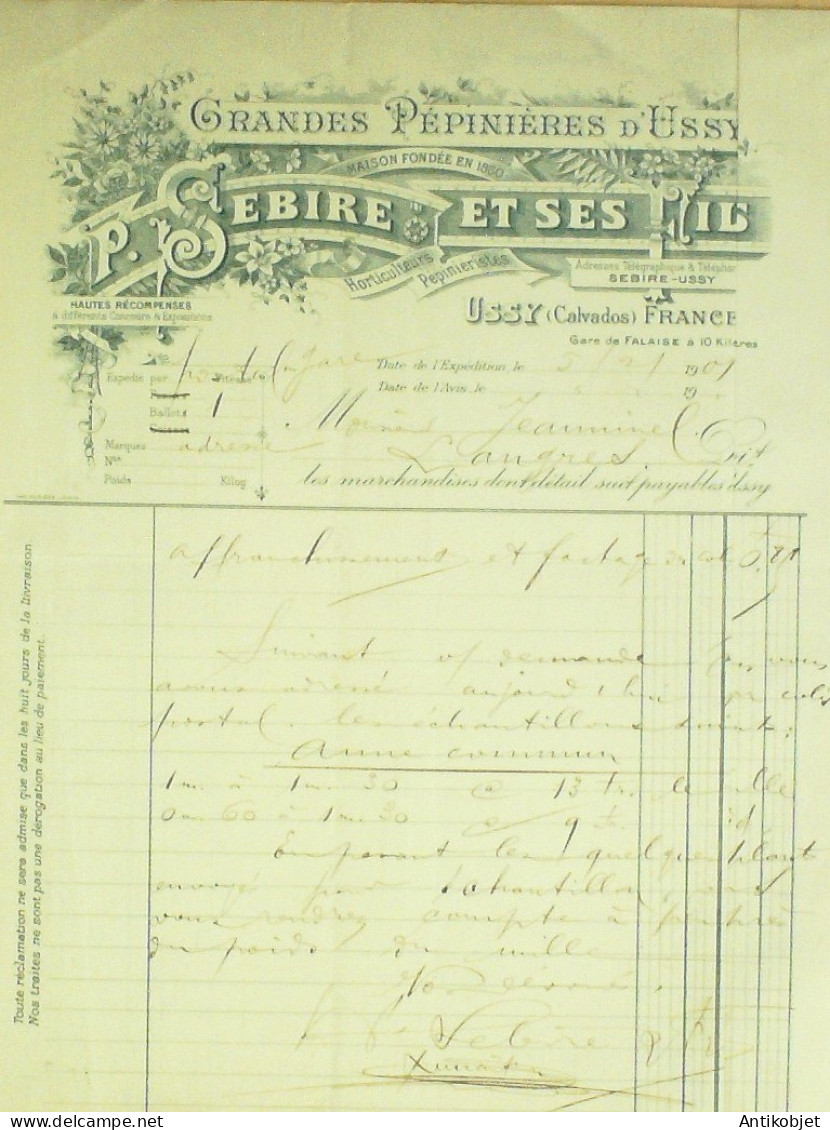 GRANDES PÉPINIÈRES D'USSY
MAISON FONDÉE EN 1860
P. SEBIRE ET SES FILS
Horticulteurs Pépiniéristes
Adresses Télégraphique & Téléphon
SEBIRE-USSY
HAUTES RÉCOMPENSES
à différents Concours & Expositions
USSY (Calvados) FRANCE
Gare de FALAISE à 10 Kilètres
gare
Date de l'Expédition le 1901
Expédié par Vitesse
Date de l'Avis le 19
Ballots 1
Monsieur Jeanninel
Marques adresse
Langres Doit
Nos
Poids Kilog
les marchandises dont détail suit payables à Ussy
Affranchissement et factage de colis
Suivant v/ demande nous vous
avons adressé aujourd'hui par colis
postal les échantillons suivants:
Aune commun
1m. à 1m. 30 @ 13 fr. le mille
0m. 60 à 1m. 20 @ 9 fr. id.
En pesant les quelques plants
envoyés pour échantillon, vous
vous rendrez compte à peu près
du poids du mille
Vos dévoués.
Sebire & fils
Toute réclamation ne sera admise que dans les huit jours de la livraison.
Nos traites ne sont pas une dérogation au lieu de paiement.
Antikobjet